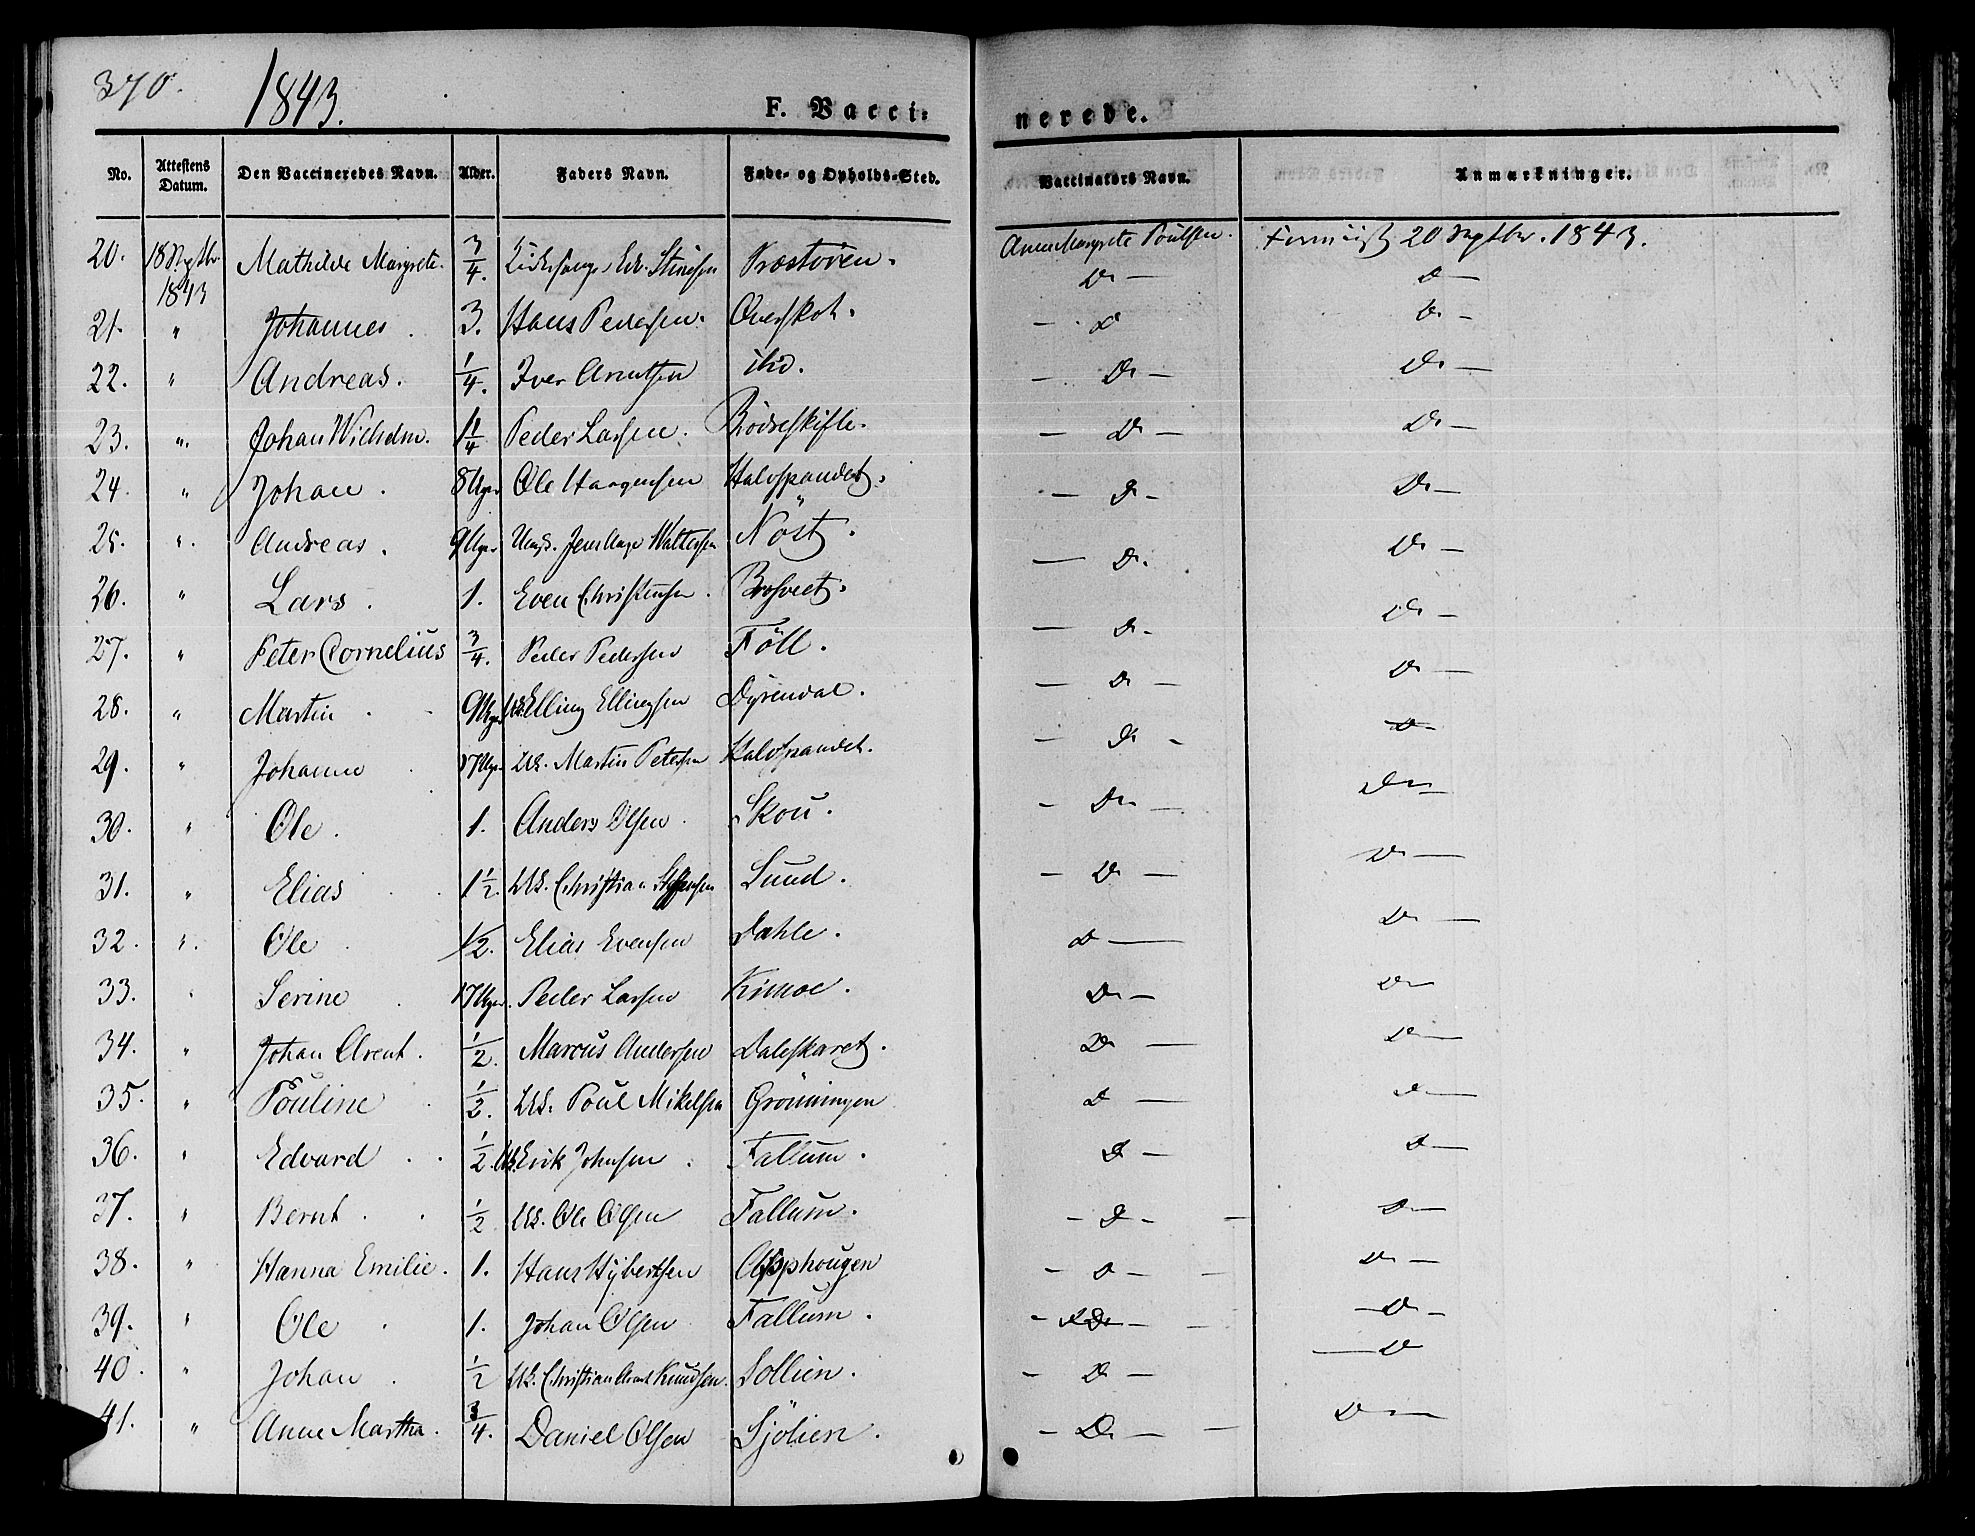 370. 1843. F. Vacci- nerede.
No. Attestens Datum. Den Vaccineredes Navn. Alder. Faders Navn. Føde- og Opholds-Sted. Vaccinators Navn. Anmærkninger.
20. 18 Septbr 1843 Mathilde Margrete. 3/4. Kirkesanger Præstøren. Anne Margrete Poulsen. 20 Septbr. 1843.
D — D —
21. " Johannes. 3. Hans Pedersen. Overskot. — D D —
22. " Andreas. 1/4. Iver Arntsen ibid. — D — D —
23. " Johan Wilhelm. 1 1/4 Peder Larsen. Rødseskifte. — D — D —
24. " Johan. 8 Uger Ole Haagensen Halvspandet. — D — D —
25. " Andreas. 9 Uger Jens Aage Waltersen Nöst. — D. D —
26. " Lars. 1. Even Christensen. Brosveet. — D — D —
27. " Peter Cornelius 3/4. Peder Pedersen Föll. — D — D —
28. " Martin 9 Uger Elling Ellingsen Dyrendal. — D — D —
29. " Johanne 17 Uger UE. Martin Petersen Halvspandet. — D — D —
30. " Ole. 1. Anders Olsen Skou. — D — D —
31. " Elias 1 1/2. UE. Christian Steffensen Lund. — D — D —
32. " Ole 1/2. Elias Evensen Dahle. D — D —
33. " Serine 17 Uger. Peder Larsen Kimoe. D — D —
34. " Johan Arent. 1/2 Marcus Andersen Daleskaret. D — D —
35. " Pouline 1/2. UE. Poul Mikelsen Grönningen D — D —
36. " Edvard 1/2. UE. Erik Johnsen. Fallum. D — D —
37. " Bernt. 1/2 UE. Ole Olsen Fallum. — D — D —
38. " Hanna Emilie. 1. Hans Hybertsen Asphougen — D — D —
39. " Ole 1. Johan Olsen Fallum. — D — D —
40. " Johan 1/2 UE. Christian Arent Knudsen. Sollien. — D — D
41. " Anne Martha. 3/4. Daniel Olsen Sjölien. — D — D —